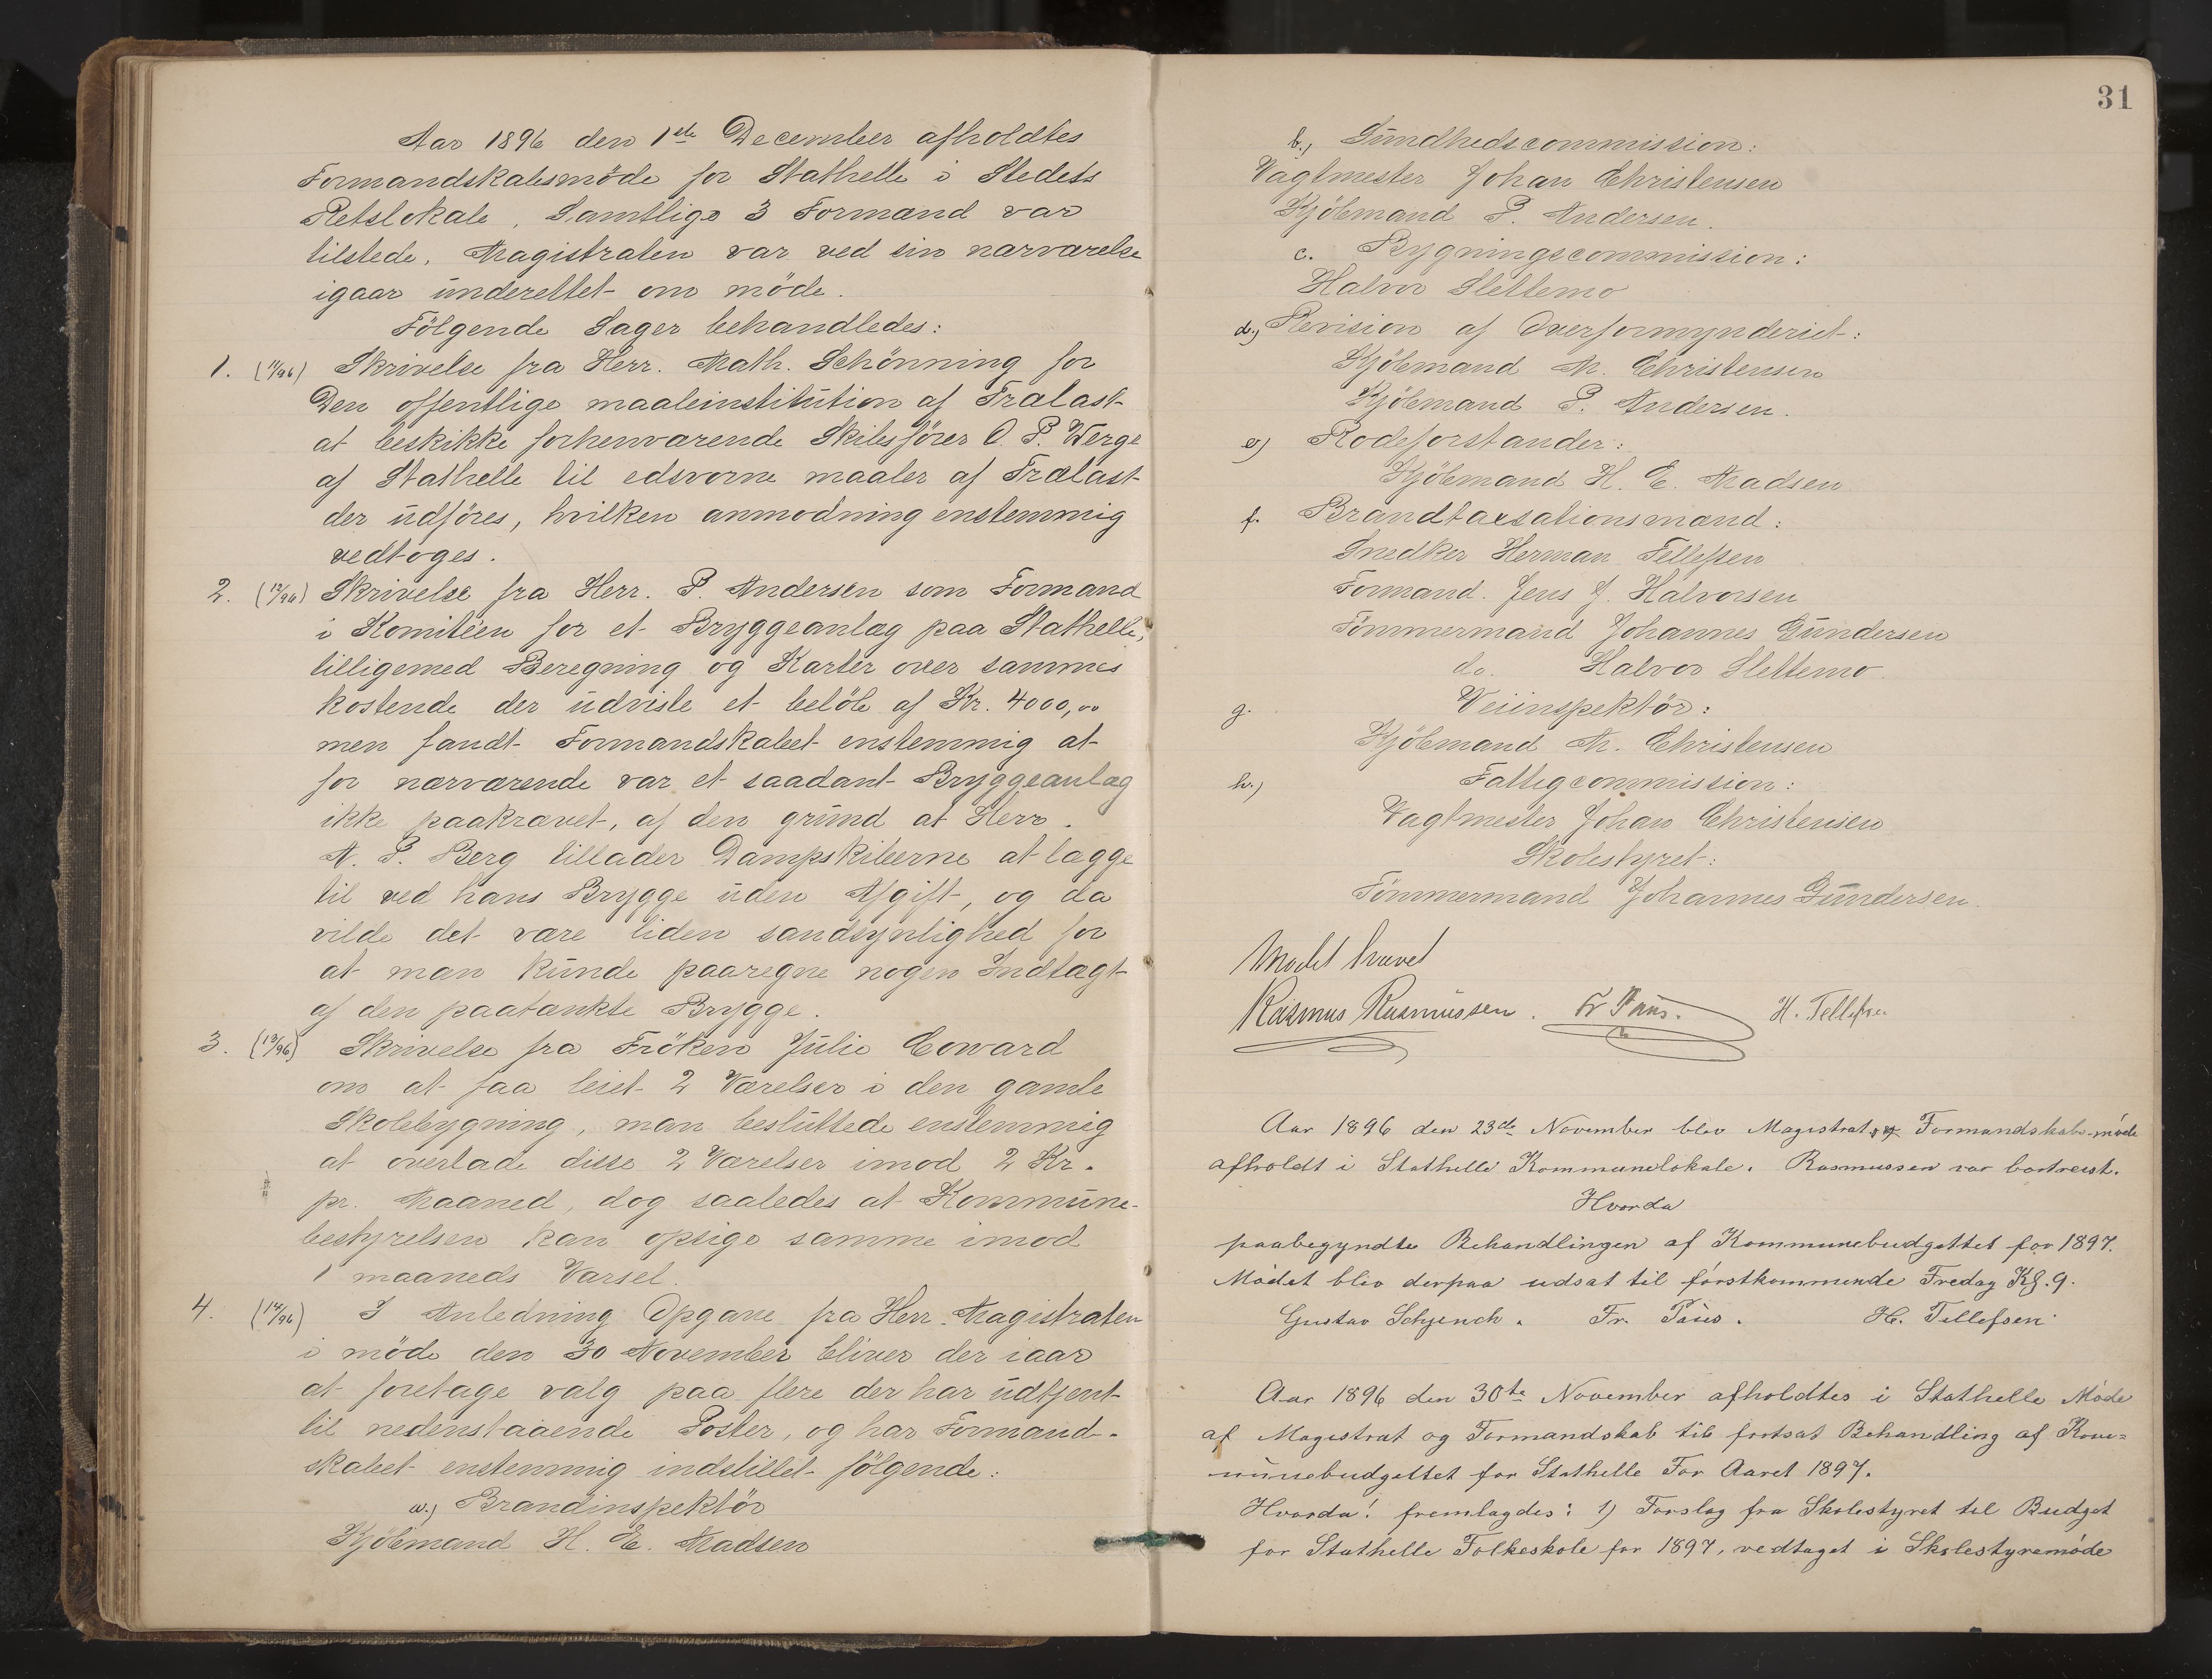 Aar 1896 den 1ste December afholdtes
Formandskabsmöde for Stathelle i Stedets
Retslokale, Samtlige 3 Formænd var
tilstede, Magistraten var ved sin nærværelse
igaar underettet om möde.
Fölgende Sager behandledes:
1. (11/96) Skrivelse fra Herr. Math. Schönning for
Den offentlige maaleinstitution af Trælast
at beskikke forhenværende Skibsförer O. P. Werge
af Stathelle til edsvorne maaler af Trælast
der udföres, hvilken anmodning enstemmig
vedtoges.
2. (12/96) Skrivelse fra Herr. P. Andersen som Formand
i Komitéen for et Bryggeanlæg paa Stathelle,
tilligemed Beregning og Karter over sammes
kostende der udviste et belöb af Kr. 4000,00
men fandt Formandskabet enstemmig at
for nærværende var et saadant Bryggeanlæg
ikke paakrævet, af den grund at Herr.
N. P. Berg tillader Dampskibeerne at lægge
til ved hans Brygge uden Afgift, og da
vilde det være liden sandsynlighed for
at man kunde paaregne nogen Indtægt
af den paatænkte Brygge.
3. (13/96) Skrivelse fra Fröken Julie Coward
om at faa leiet 2 Værelser i den gamle
Skolebygning, man besluttede enstemmig
at overlade disse 2 Værelser imod 2 Kr.
pr. Maaned, dog saaledes at Kommune-
bestyrelsen kan opsige samme imod
1 maaneds Varsel.
4. (14/96) I Anledning Opgave fra Herr. Magistraten
i möde den 30 November bliver der iaar
at foretage valg paa flere der har udtjent
til nedenstaaende Poster, og har Formand-
skabet enstemmig indstillet fölgende:
a.) Brandinspektör
Kjöbmand H. E. Madsen
31
b., Sundhedscommission:
Vagtmester Johan Christensen
Kjöbmand P. Andersen.
c. Bygningscommission:
Halvor Slettemo
d.) Revision af Overformynderiet:
Kjöbmand M. Christensen
Kjöbmand P. Andersen.
e) Rodeforstander:
Kjöbmand H. E. Madsen
f. Brandtaxationsmænd:
Snedker Herman Tellefsen
Formand. Jens J. Halvorsen
Tömmermand Johannes Gundersen
do. Halvor Slettemo.
g. Veiinspektör:
Kjöbmand M. Christensen
h.) Fattigcommission:
Vagtmester Johan Christensen
Skolestyret:
Tömmermand Johannes Gundersen.
Mødet hævet
Rasmus Rasmussen. Fr Paus. H. Tellefsen
Aar 1896 den 23de November blev Magistrat og Formandskabs-möde
afholdt i Stathelle Kommunelokale. Rasmussen var bortreist.
Hvorda
paabegyndtes Behandlingen af Kommunebudgettet for 1897.
Mödet blev derpaa udsat til förstkommende Fredag Kl. 9.
Gustav Schjench. Fr. Paus. H. Tellefsen
Aar 1896 den 30te November afholdtes i Stathelle Möde
af Magistrat og Formandskab til fortsat Behandling af Kom=
munebudgettet for Stathelle For Aaret 1897.
Hvorda! fremlagdes: 1) Forslag fra Skolestyret til Budget
for Stathelle Folkeskole for 1897, vedtaget i Skolestyremöde